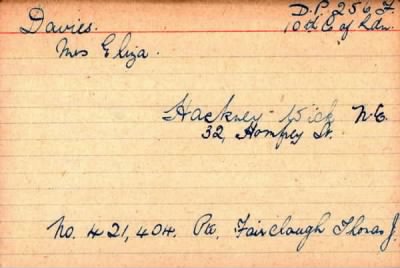 Davies.
Mrs Eliza.
D.P. 256 F.
10th C of Ldn.
Hackney Wick N.E.
32, Hompey St.
No. 421,404. Pte. Fairclough Thomas J.